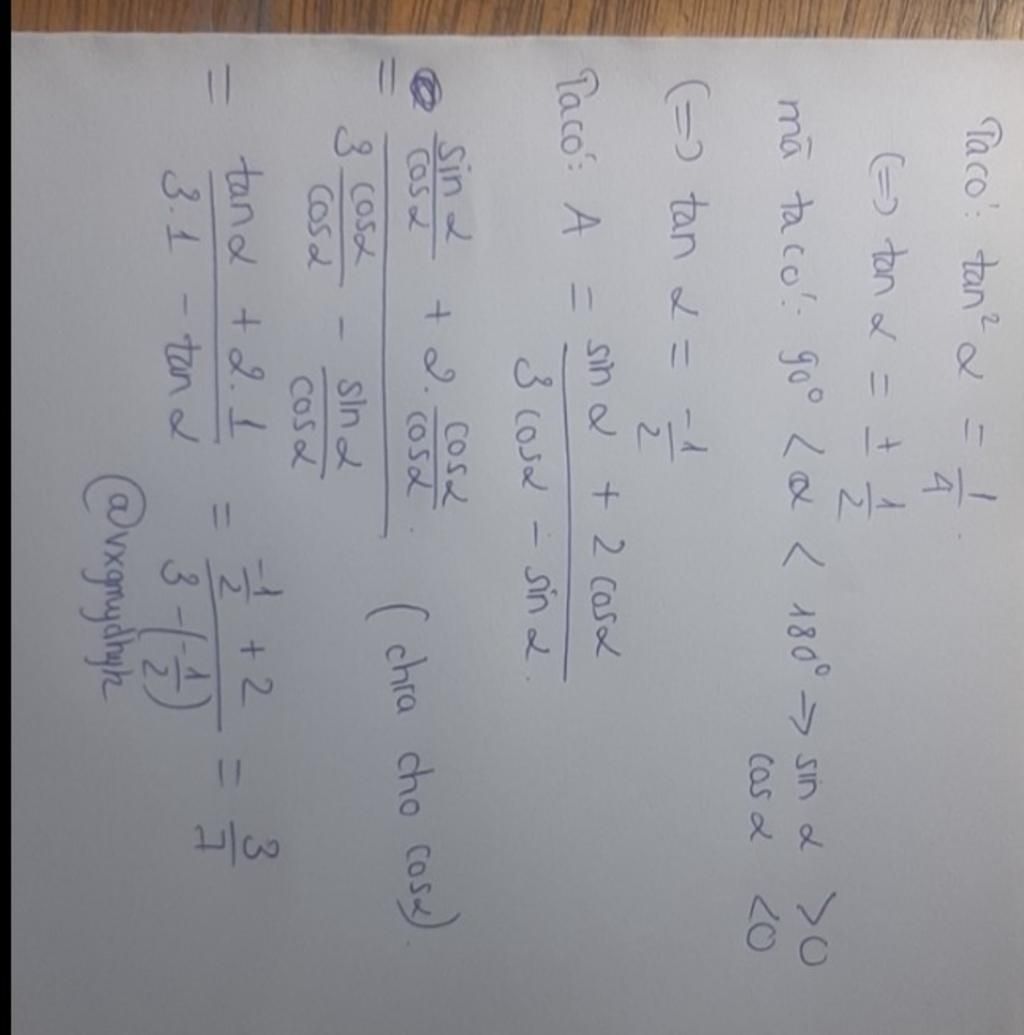 Ta có: tan² α = 1/4.
(=) tan α = ± 1/2
mà ta có: 90° < α < 180° → sin α > 0
cos α < 0
(=) tan α = -1/2
Ta có: A = (sin α + 2 cos α)/(3 cos α - sin α).
= (sin α/cos α + 2. cos α/cos α)/(3 cos α/cos α - sin α/cos α). (chia cho cos α).
= (tan α + 2.1)/(3.1 - tan α) = (-1/2 + 2)/(3 - (-1/2)) = 3/7